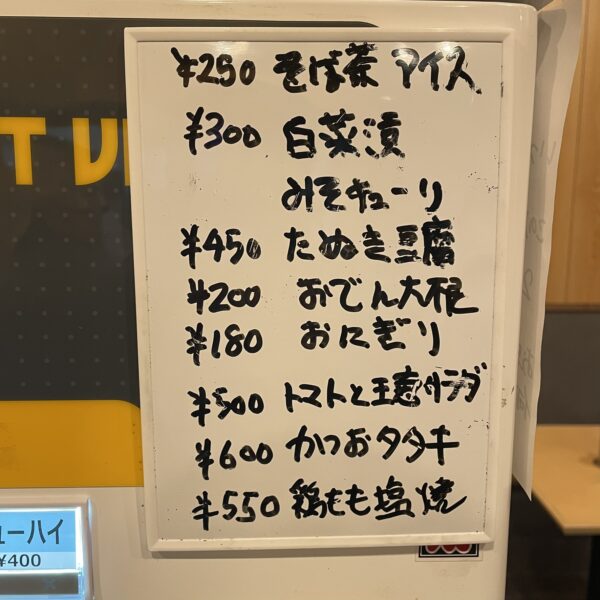 ¥250 そば茶 アイス
¥300 白菜漬
みそキューリ
¥450 たぬき豆腐
¥200 おでん大根
¥180 おにぎり
¥500 トマトと玉葱サラダ
¥600 かつおタタキ
¥550 鶏もも塩焼
ューハイ
¥400